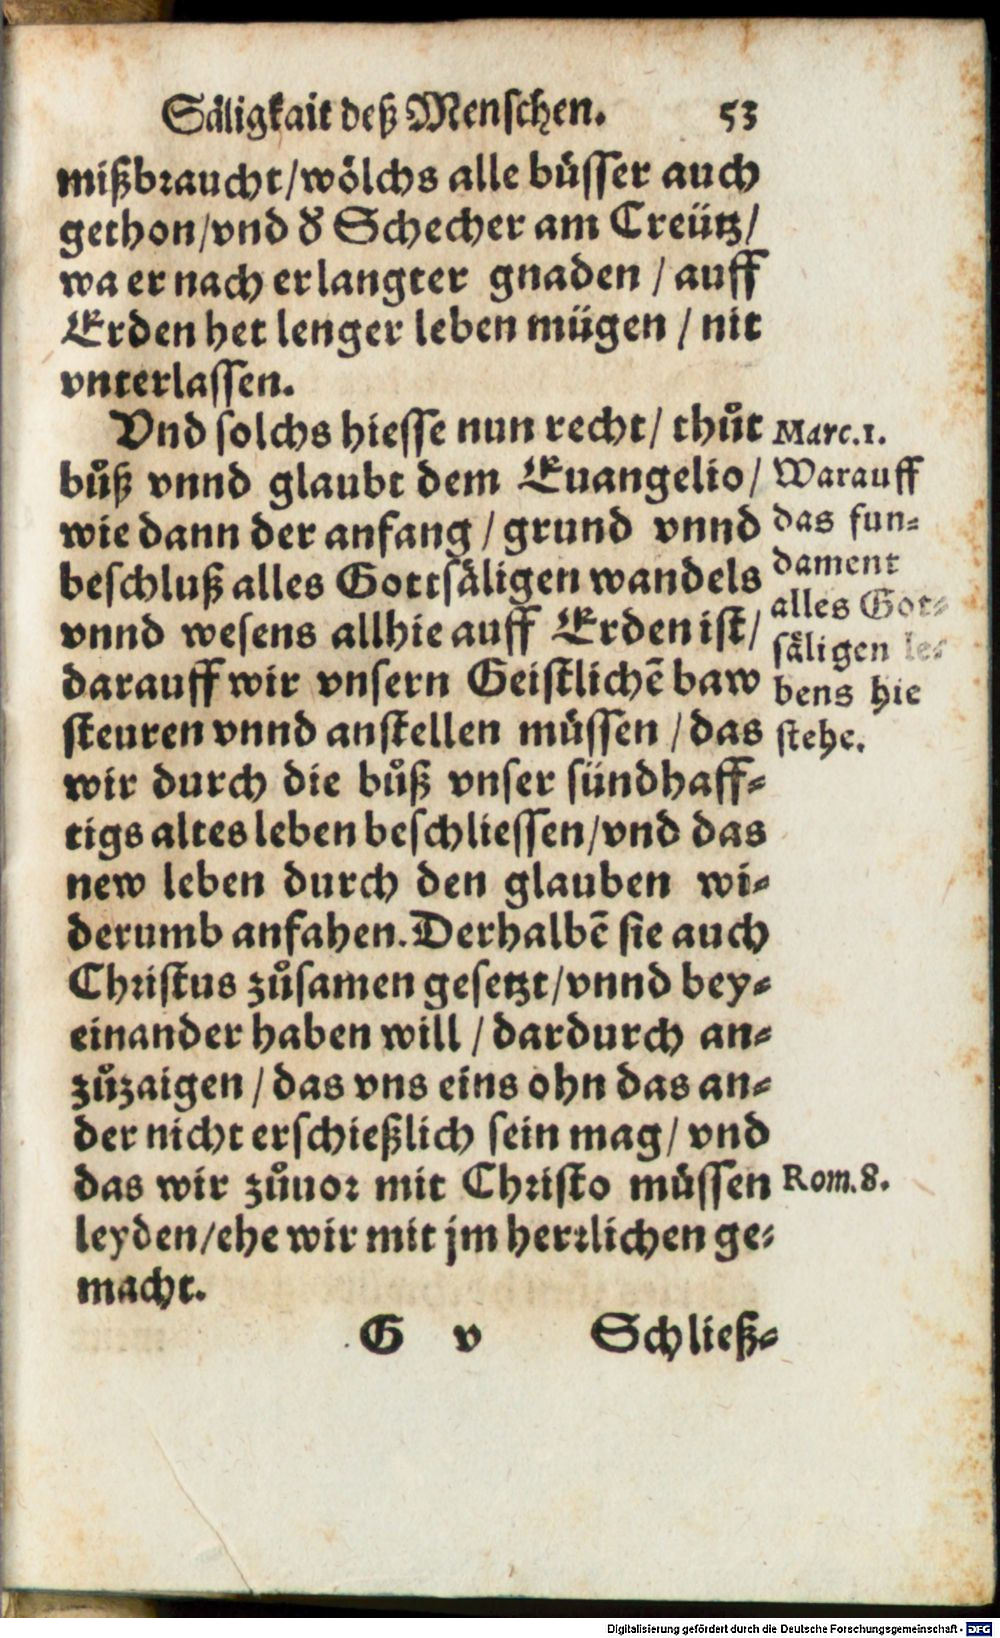 Säligkait deß Menschen. 53
mißbraucht/wölchs alle büsser auch
gethon/vnd d̕ Schecher am Creütz/
wa er nach erlangter gnaden / auff
Erden het lenger leben mügen / nit
vnterlassen.
Vnd solchs hiesse nun recht/ thůt
bůß vnnd glaubt dem Euangelio/
wie dann der anfang / grund vnnd
beschluß alles Gottsäligen wandels
vnnd wesens allhie auff Erden ist/
darauff wir vnsern Geistlichē baw
steuren vnnd anstellen müssen / das
wir durch die bůß vnser sündhaff-
tigs altes leben beschliessen/vnd das
new leben durch den glauben wi-
derumb anfahen. Derhalbē sie auch
Christus zůsamen gesetzt/vnnd bey-
einander haben will / dardurch an-
zůzaigen / das vns eins ohn das an-
der nicht erschießlich sein mag/ vnd
das wir zůuor mit Christo müssen
leyden/ehe wir mit jm herrlichen ge-
macht.
Marc.1.
Warauff
das fun-
dament
alles Got-
säligen le-
bens hie
stehe.
Rom.8.
G v Schließ-
Digitalisierung gefördert durch die Deutsche Forschungsgemeinschaft - DFG